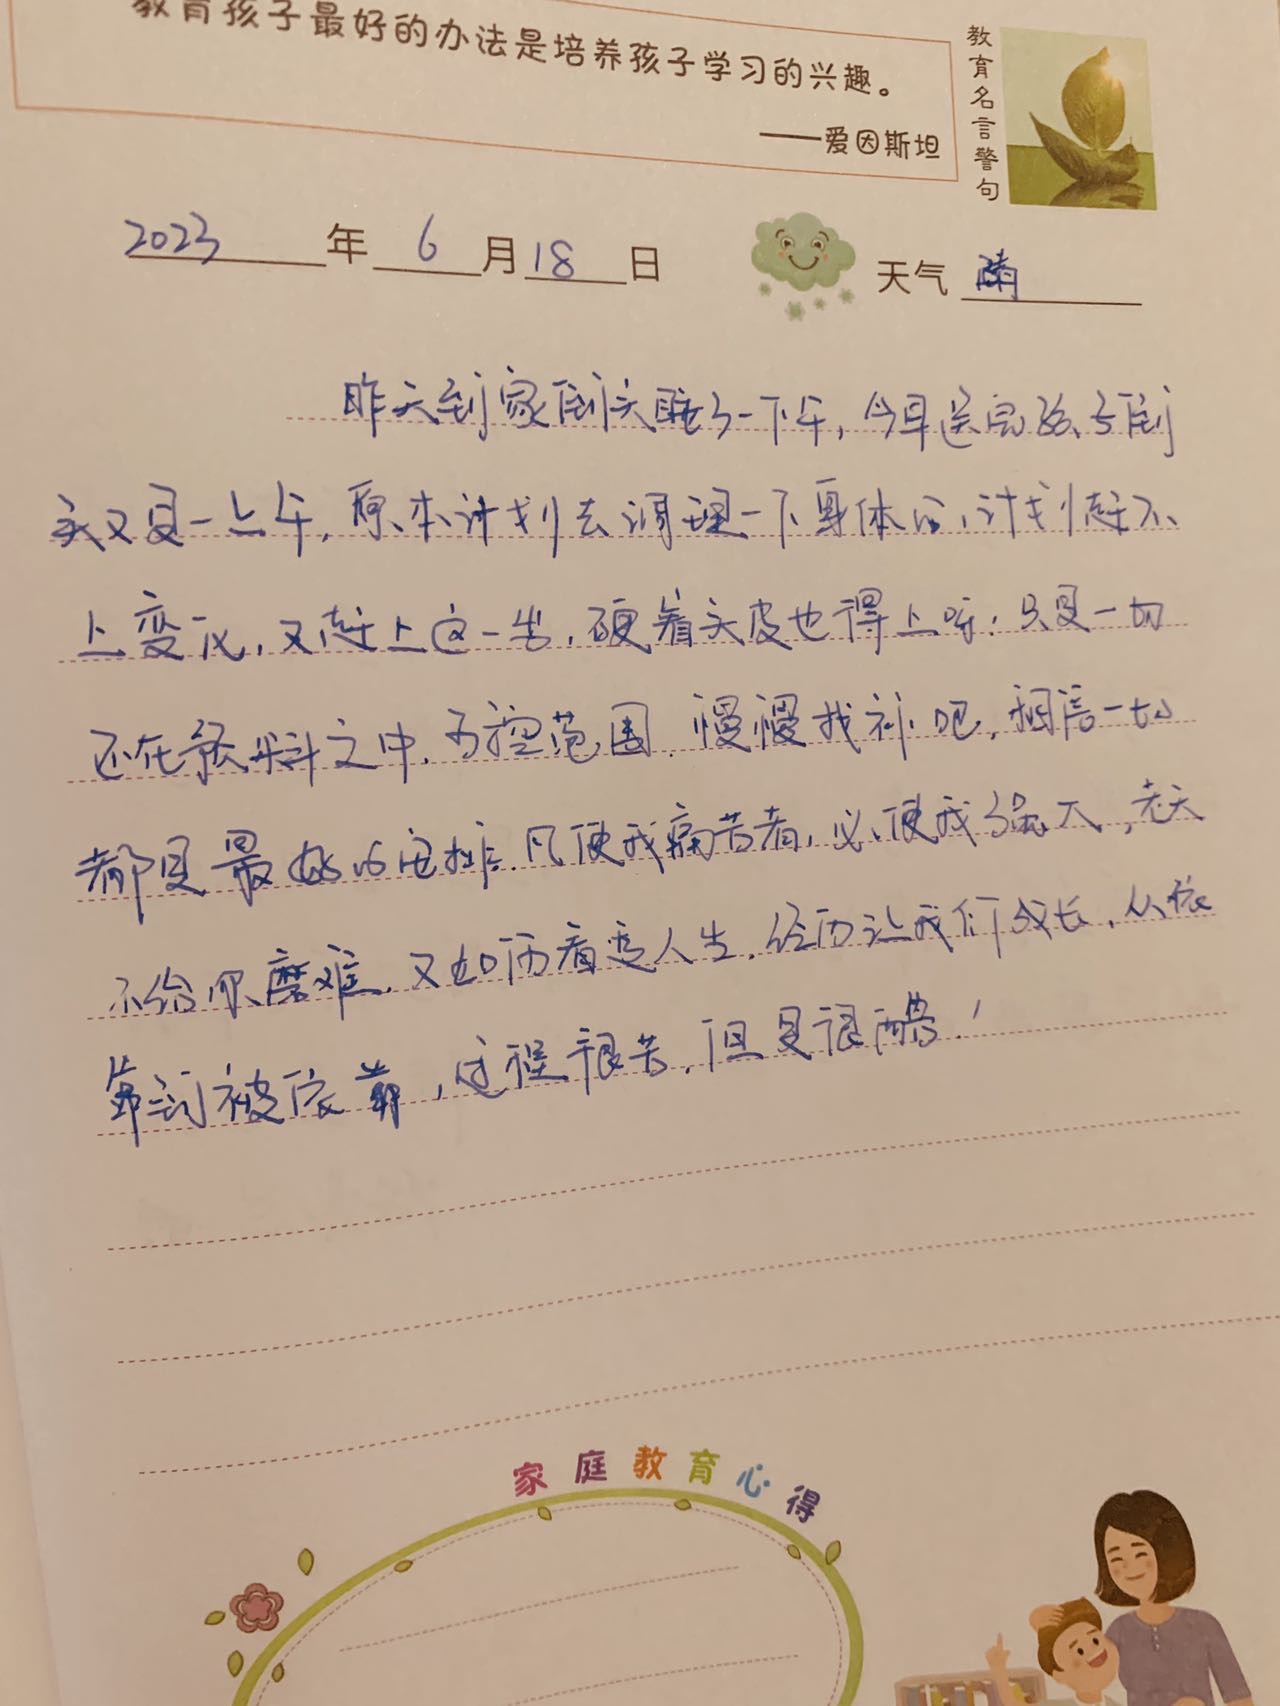 教育孩子最好的办法是培养孩子学习的兴趣。
——爱因斯坦
教育名言警句
2023年6月18日 天气 晴
昨天到家倒头睡了一下午,今早送完孩子倒
头又是一上午,原本计划去调理一下身体的,计划赶不
上变化,又赶上这一出,硬着头皮也得上呀!只是一切
还在预料之中,可控范围,慢慢找补吧,相信一切
都是最好的安排,凡使我痛苦者,必使我强大,老天
不给你磨难,又如何看透人生,经历让我们成长,从依
靠到被依靠,过程很苦,但是很酷!
家庭教育心得